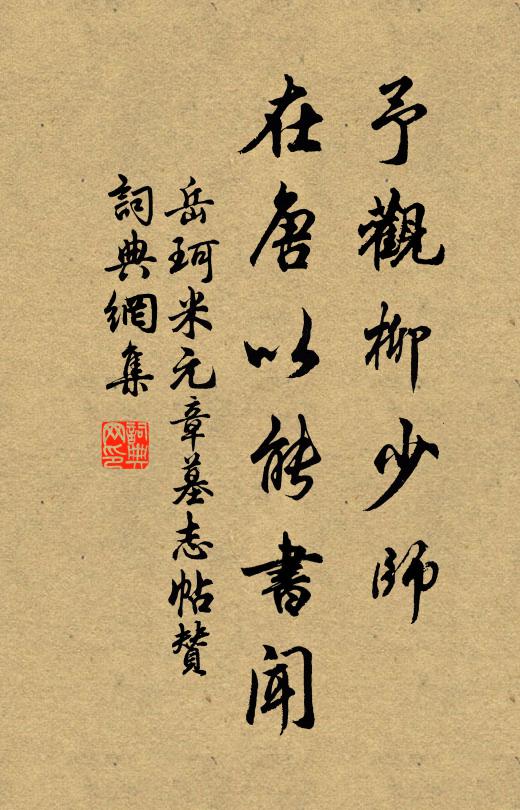 予觀柳少師
在唐以能書聞
岳珂米元章墓志帖贊
詞典網集
詞典网印